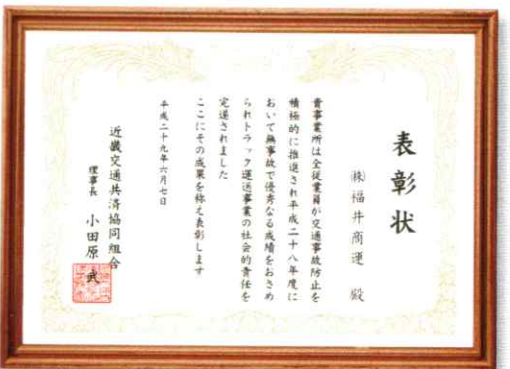 表彰状
㈱福井商運 殿
貴事業所は全従業員が交通事故防止を
積極的に推進され平成二十八年度に
おいて無事故で優秀なる成績をおさめ
られトラック運送事業の社会的責任を
完遂されました
ここにその成果を称え表彰します
平成二十九年六月七日
近畿交通共済協同組合
理事長 小田原 武